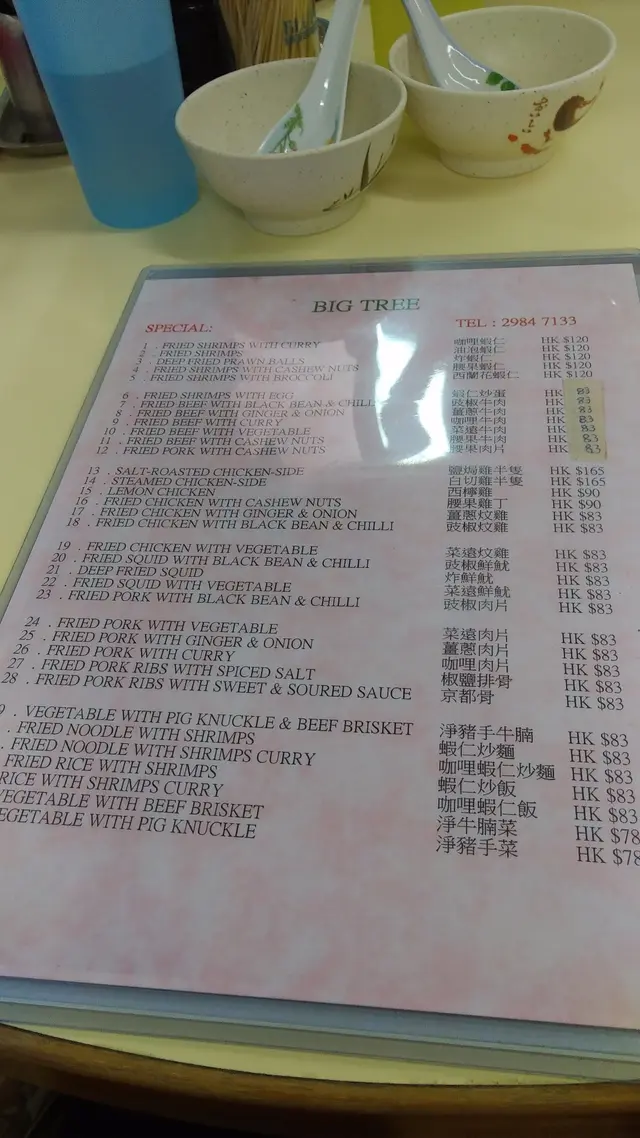 BIG TREE
SPECIAL: TEL : 2984 7133
1 . FRIED SHRIMPS WITH CURRY 咖哩蝦仁 HK $120
2 . FRIED SHRIMPS 油泡蝦仁 HK $120
3 . DEEP FRIED PRAWN BALLS 炸蝦仁 HK $120
4 . FRIED SHRIMPS WITH CASHEW NUTS 腰果蝦仁 HK $120
5 . FRIED SHRIMPS WITH BROCCOLI 西蘭花蝦仁 HK $120
6 . FRIED SHRIMPS WITH EGG 蝦仁炒蛋 HK 83
7 . FRIED BEEF WITH BLACK BEAN & CHILLI 豉椒牛肉 HK 83
8 . FRIED BEEF WITH GINGER & ONION 薑蔥牛肉 HK 83
9 . FRIED BEEF WITH CURRY 咖哩牛肉 HK 83
10 . FRIED BEEF WITH VEGETABLE 菜遠牛肉 HK 83
11 . FRIED BEEF WITH CASHEW NUTS 腰果牛肉 HK 83
12 . FRIED PORK WITH CASHEW NUTS 腰果肉片 HK 83
13 . SALT-ROASTED CHICKEN-SIDE 鹽焗雞半隻 HK $165
14 . STEAMED CHICKEN-SIDE 白切雞半隻 HK $165
15 . LEMON CHICKEN 西檸雞 HK $90
16 . FRIED CHICKEN WITH CASHEW NUTS 腰果雞丁 HK $90
17 . FRIED CHICKEN WITH GINGER & ONION 薑蔥炆雞 HK $83
18 . FRIED CHICKEN WITH BLACK BEAN & CHILLI 豉椒炆雞 HK $83
19 . FRIED CHICKEN WITH VEGETABLE 菜遠炆雞 HK $83
20 . FRIED SQUID WITH BLACK BEAN & CHILLI 豉椒鮮魷 HK $83
21 . DEEP FRIED SQUID 炸鮮魷 HK $83
22 . FRIED SQUID WITH VEGETABLE 菜遠鮮魷 HK $83
23 . FRIED PORK WITH BLACK BEAN & CHILLI 豉椒肉片 HK $83
24 . FRIED PORK WITH VEGETABLE 菜遠肉片 HK $83
25 . FRIED PORK WITH GINGER & ONION 薑蔥肉片 HK $83
26 . FRIED PORK WITH CURRY 咖哩肉片 HK $83
27 . FRIED PORK RIBS WITH SPICED SALT 椒鹽排骨 HK $83
28 . FRIED PORK RIBS WITH SWEET & SOURED SAUCE 京都骨 HK $83
9 . VEGETABLE WITH PIG KNUCKLE & BEEF BRISKET 淨豬手牛腩 HK $83
. FRIED NOODLE WITH SHRIMPS 蝦仁炒麵 HK $83
. FRIED NOODLE WITH SHRIMPS CURRY 咖哩蝦仁炒麵 HK $83
FRIED RICE WITH SHRIMPS 蝦仁炒飯 HK $83
RICE WITH SHRIMPS CURRY 咖哩蝦仁飯 HK $83
VEGETABLE WITH BEEF BRISKET 淨牛腩菜 HK $78
EGETABLE WITH PIG KNUCKLE 淨豬手菜 HK $78